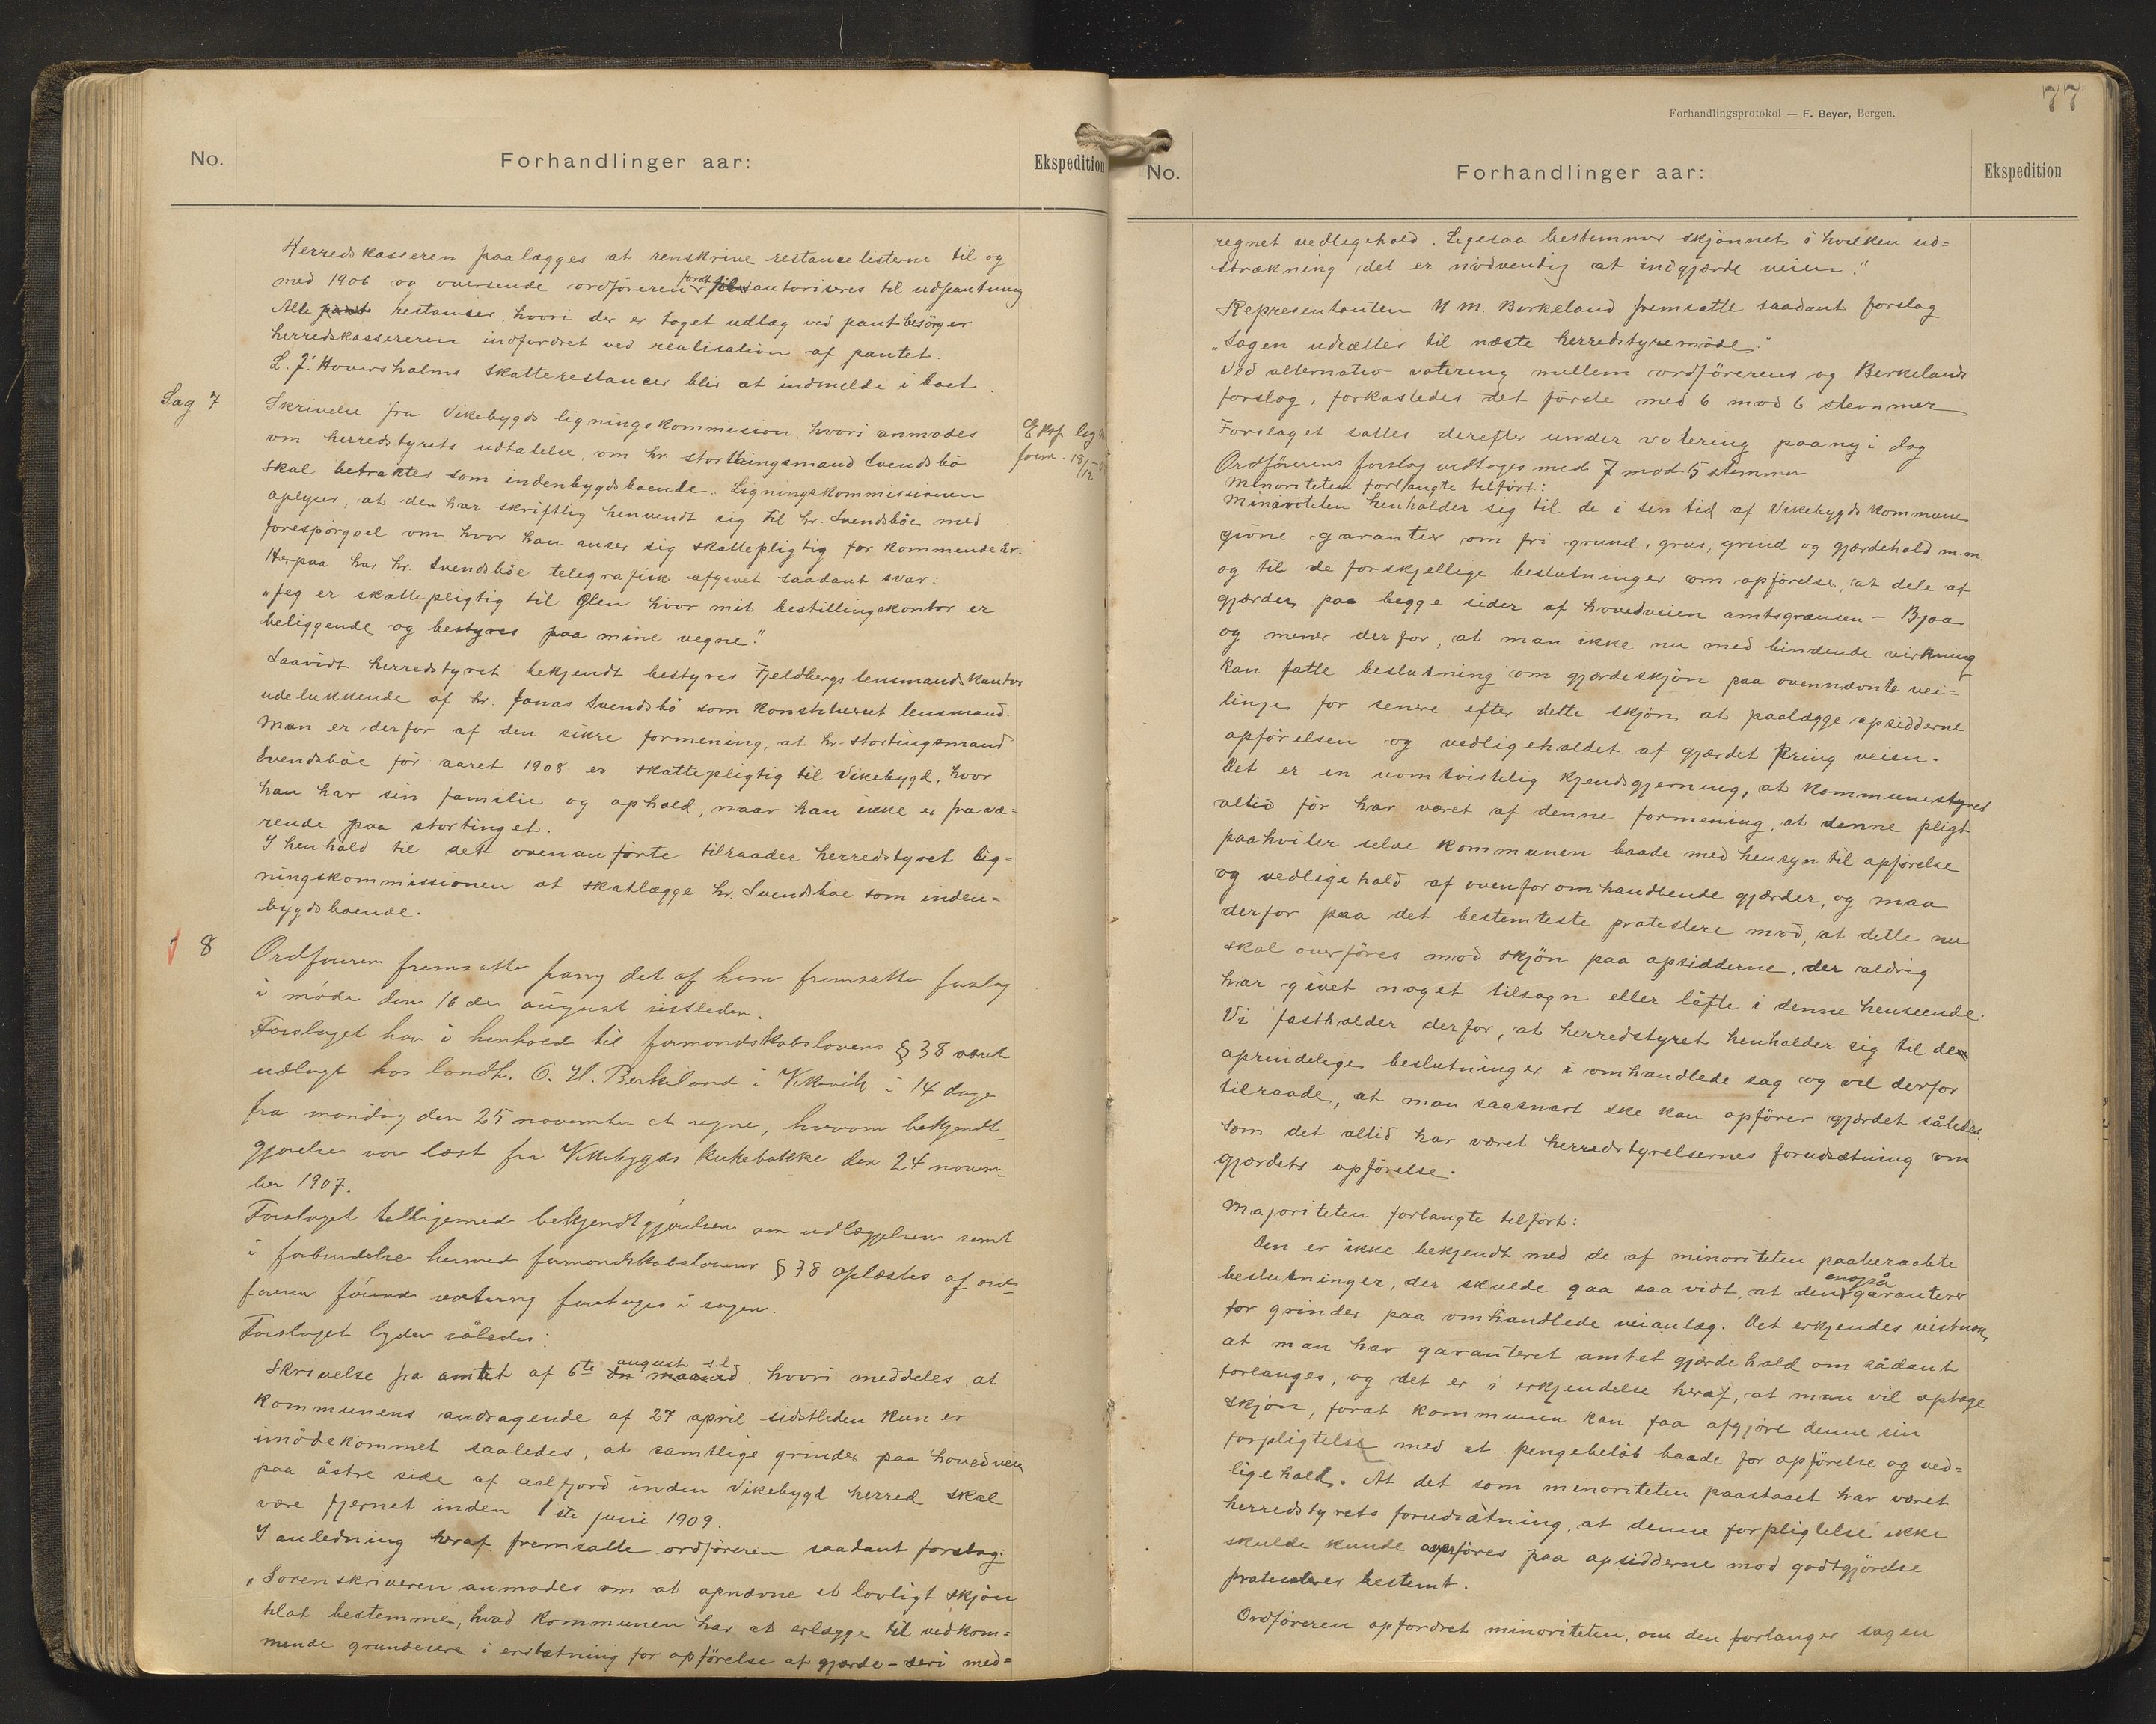 No.
Forhandlinger aar:
Ekspedition
Herredskasseren paalægges at renskrive restancelisterne til og
med 1906 og oversende ordføreren forat autoriseres til udpantning
Alle restanser, hvori der er toget udlæg ved pant besörger
herredskassereren indfordret ved realisation af pantet.
L. J. Hovershalms skatterestancer blir at indmelde i boet.
Sag 7
Skrivelse fra Vikebygds ligningskommission hvori anmodes
om herredstyrets udtalelse, om hr. storthingsmand Svendsbö
skal betraktes som indenbygdsboende. Ligningskommissionen
oplyser, at den har skriftlig henvendt sig til hr. Svendsböe med
forespörgsel om hvor han anser sig skattepligtig for kommende år.
Herpaa har hr. Svendsböe telegrafisk afgivet saadant svar:
"Jeg er skattepligtig til Ølen hvor mit bestillingskontor er
beliggende og bestyres paa mine vegne."
Saavidt herredstyret bekjendt bestyres Fjeldbergs lensmandskontor
udelukkende af hr. Jonas Svendsbö som konstitueret lensmand.
Man er derfor af den sikre formening, at hr. stortingsmand
Svendsböe for aaret 1908 er skattepligtig til Vikebygd, hvor
han har sin familie og ophold, naar han ikke er fravæ=
rende paa stortinget.
I henhold til det ovenanförte tilraader herredstyret lig=
ningskommissionen at skatlægge hr. Svendsboe som inden=
bygdsboende.
Eksp. lign
form. 18/12
8
Ordføreren fremsatte pany det af ham fremsatte forslag
i möde den 16de august sistleden.
Forslaget har i henhold til formandskabslovens § 38 været
udlagt hos landh. O. H. Berkeland i Vikevik i 14 dage
fra mandag den 25 november at regne, hvorom bekjendt-
gjørelse var læst fra Vikebygds kirkebakke den 24 novem-
ber 1907.
Forslaget tilligemed bekjendtgjørelsen om udlæggelsen samt
i forbindelse hermed formandskabslovens § 38 oplæstes af ord-
føreren förend votering foretages i sagen.
Forslaget lyder således:
Skrivelse fra amtet af 6te august s.l. hvori meddeles, at
kommunens andragende af 27 april sidstleden kun er
imödekommet saaledes, at samtlige grinder paa hovedveien
paa östre side af aalfjord inden Vikebygd herred skal
være fjernet inden 1ste juni 1909.
I anledning heraf fremsatte ordføreren saadant forslag:
"Sorenskriveren anmodes om at opnævne et lovligt skjön
tilat bestemme, hvad kommunen har at erlægge til vedkom=
mende grundeiere i erstatning for opförelse af gjærde - deri med=
77
Forhandlingsprotokol — F. Beyer, Bergen.
No.
Forhandlinger aar:
Ekspedition
regnet vedligehold. Ligesaa bestemmer skjönnet i hvilken ud=
strækning det er nödvendig at indgjærde veien."
Repræsentanten N M. Birkeland fremsatte saadant forslag
"Sagen udsættes til næste herredstyremöde."
Ved alternativ votering mellem ordförerens og Berkelands
forslag, forkastedes det förste med 6 mod 6 stemmer
Forslaget sattes derefter under votering paany i dag
Ordförerens forslag vedtoges med 7 mod 5 stemmer
Minoriteten forlangte tilfört:
Minoriteten henholder sig til de i sin tid af Vikebygds kommune
givne garantier om fri grund, grus, grind og gjærdehold m.m.
og til de forskjellige beslutninger om opförelse, at dele af
gjærder paa begge sider af hovedveien amtsgrænsen - Bjoa
og mener derfor, at man ikke nu med bindende virkning
kan fatte beslutning om gjærdeskjön paa ovennævnte vei=
linje for senere efter dette skjön at paalægge opsidderne
opförelsen og vedligeholdet af gjærdet kring veien.
Det er en uomtvistelig kjendsgjerning, at kommunestyret
altid för har været af denne formening, at denne pligt
paahviler selve kommunen baade med hensyn til opförelse
og vedligehold af ovenfor omhandlende gjærder, og maa
derfor paa det bestemteste protestere mod, at dette nu
skal overföres mod skjön paa opsidderne, der aldrig
har givet noget tilsagn eller löfte i denne henseende.
Vi fastholder derfor, at herredstyret henholder sig til de
oprindelige beslutninger i omhandlede sag og vil derfor
tilraade, at man saasnart ske kan opförer gjærdet således,
som det altid har været herredstyrelsernes forudsætning om
gjærdets opförelse.
Majoriteten forlangte tilfört:
Den er ikke bekjendt med de af minoriteten paaberaabte
beslutninger, der skulde gaa saa vidt, at den garanterer
for grinder paa omhandlede veianlæg. Det erkjendes vistnok,
at man har garanteret amtet gjærdehold om sådant
forlanges, og det er i erkjendelse heraf, at man vil optage
skjön, forat kommunen kan faa afgjöre denne sin
forpligtelse med et pengebelöb baade for opförelse og ved=
ligehold. At det som minoriteten paastaaet har været
herredstyrets forudsætning, at denne forpligtelse ikke
skulde kunde overföres paa opsidderne mod godtgjörelse
protesteres bestemt.
Ordföreren opfordret minoriteten, om den forlanger sagen